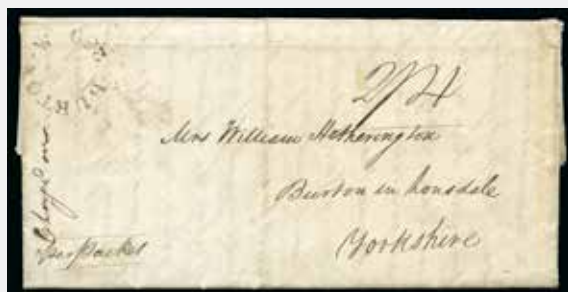 2/4
Mrs William Hetherington
Burton in Lonsdale
Yorkshire
Per Packet